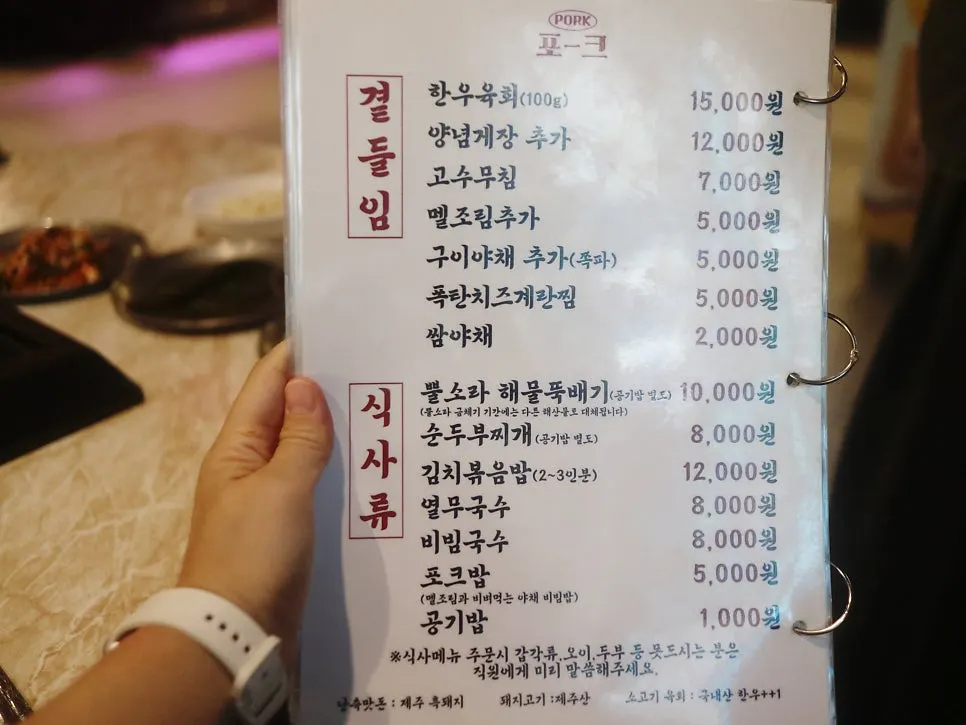 PORK
포-크
곁들임
한우육회(100g) 15,000원
양념게장 추가 12,000원
고수무침 7,000원
멜조림추가 5,000원
구이야채 추가(쪽파) 5,000원
폭탄치즈계란찜 5,000원
쌈야채 2,000원
식사류
뿔소라 해물뚝배기(공기밥 별도) 10,000원
(뿔소라 금채기 기간에는 다른 해산물로 대체됩니다)
순두부찌개(공기밥 별도) 8,000원
김치볶음밥(2~3인분) 12,000원
열무국수 8,000원
비빔국수 8,000원
포크밥 5,000원
(멜조림과 비벼먹는 야채 비빔밥)
공기밥 1,000원
※식사메뉴 주문시 갑각류,오이,두부 등 못드시는 분은
직원에게 미리 말씀해주세요.
난축맛돈 : 제주 흑돼지 돼지고기 : 제주산 소고기 육회 : 국내산 한우++1